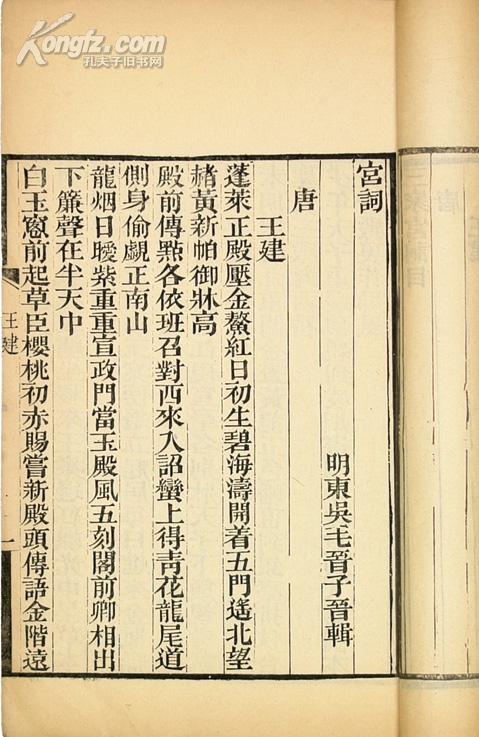 Kongfz.com
孔夫子旧书网
宮詞
明東吳毛晉子晉輯
唐
王建
蓬萊正殿壓金鰲紅日初生碧海濤開着五門遙北望
赭黃新帕御牀高
殿前傳點各依班召對西來入詔蠻上得青花龍尾道
側身偷覷正南山
龍烟日暖紫重重宣政門當玉殿風五刻閣前卿相出
下簾聲在半天中
白玉窻前起草臣櫻桃初赤賜嘗新殿頭傳語金階遠
王建
一